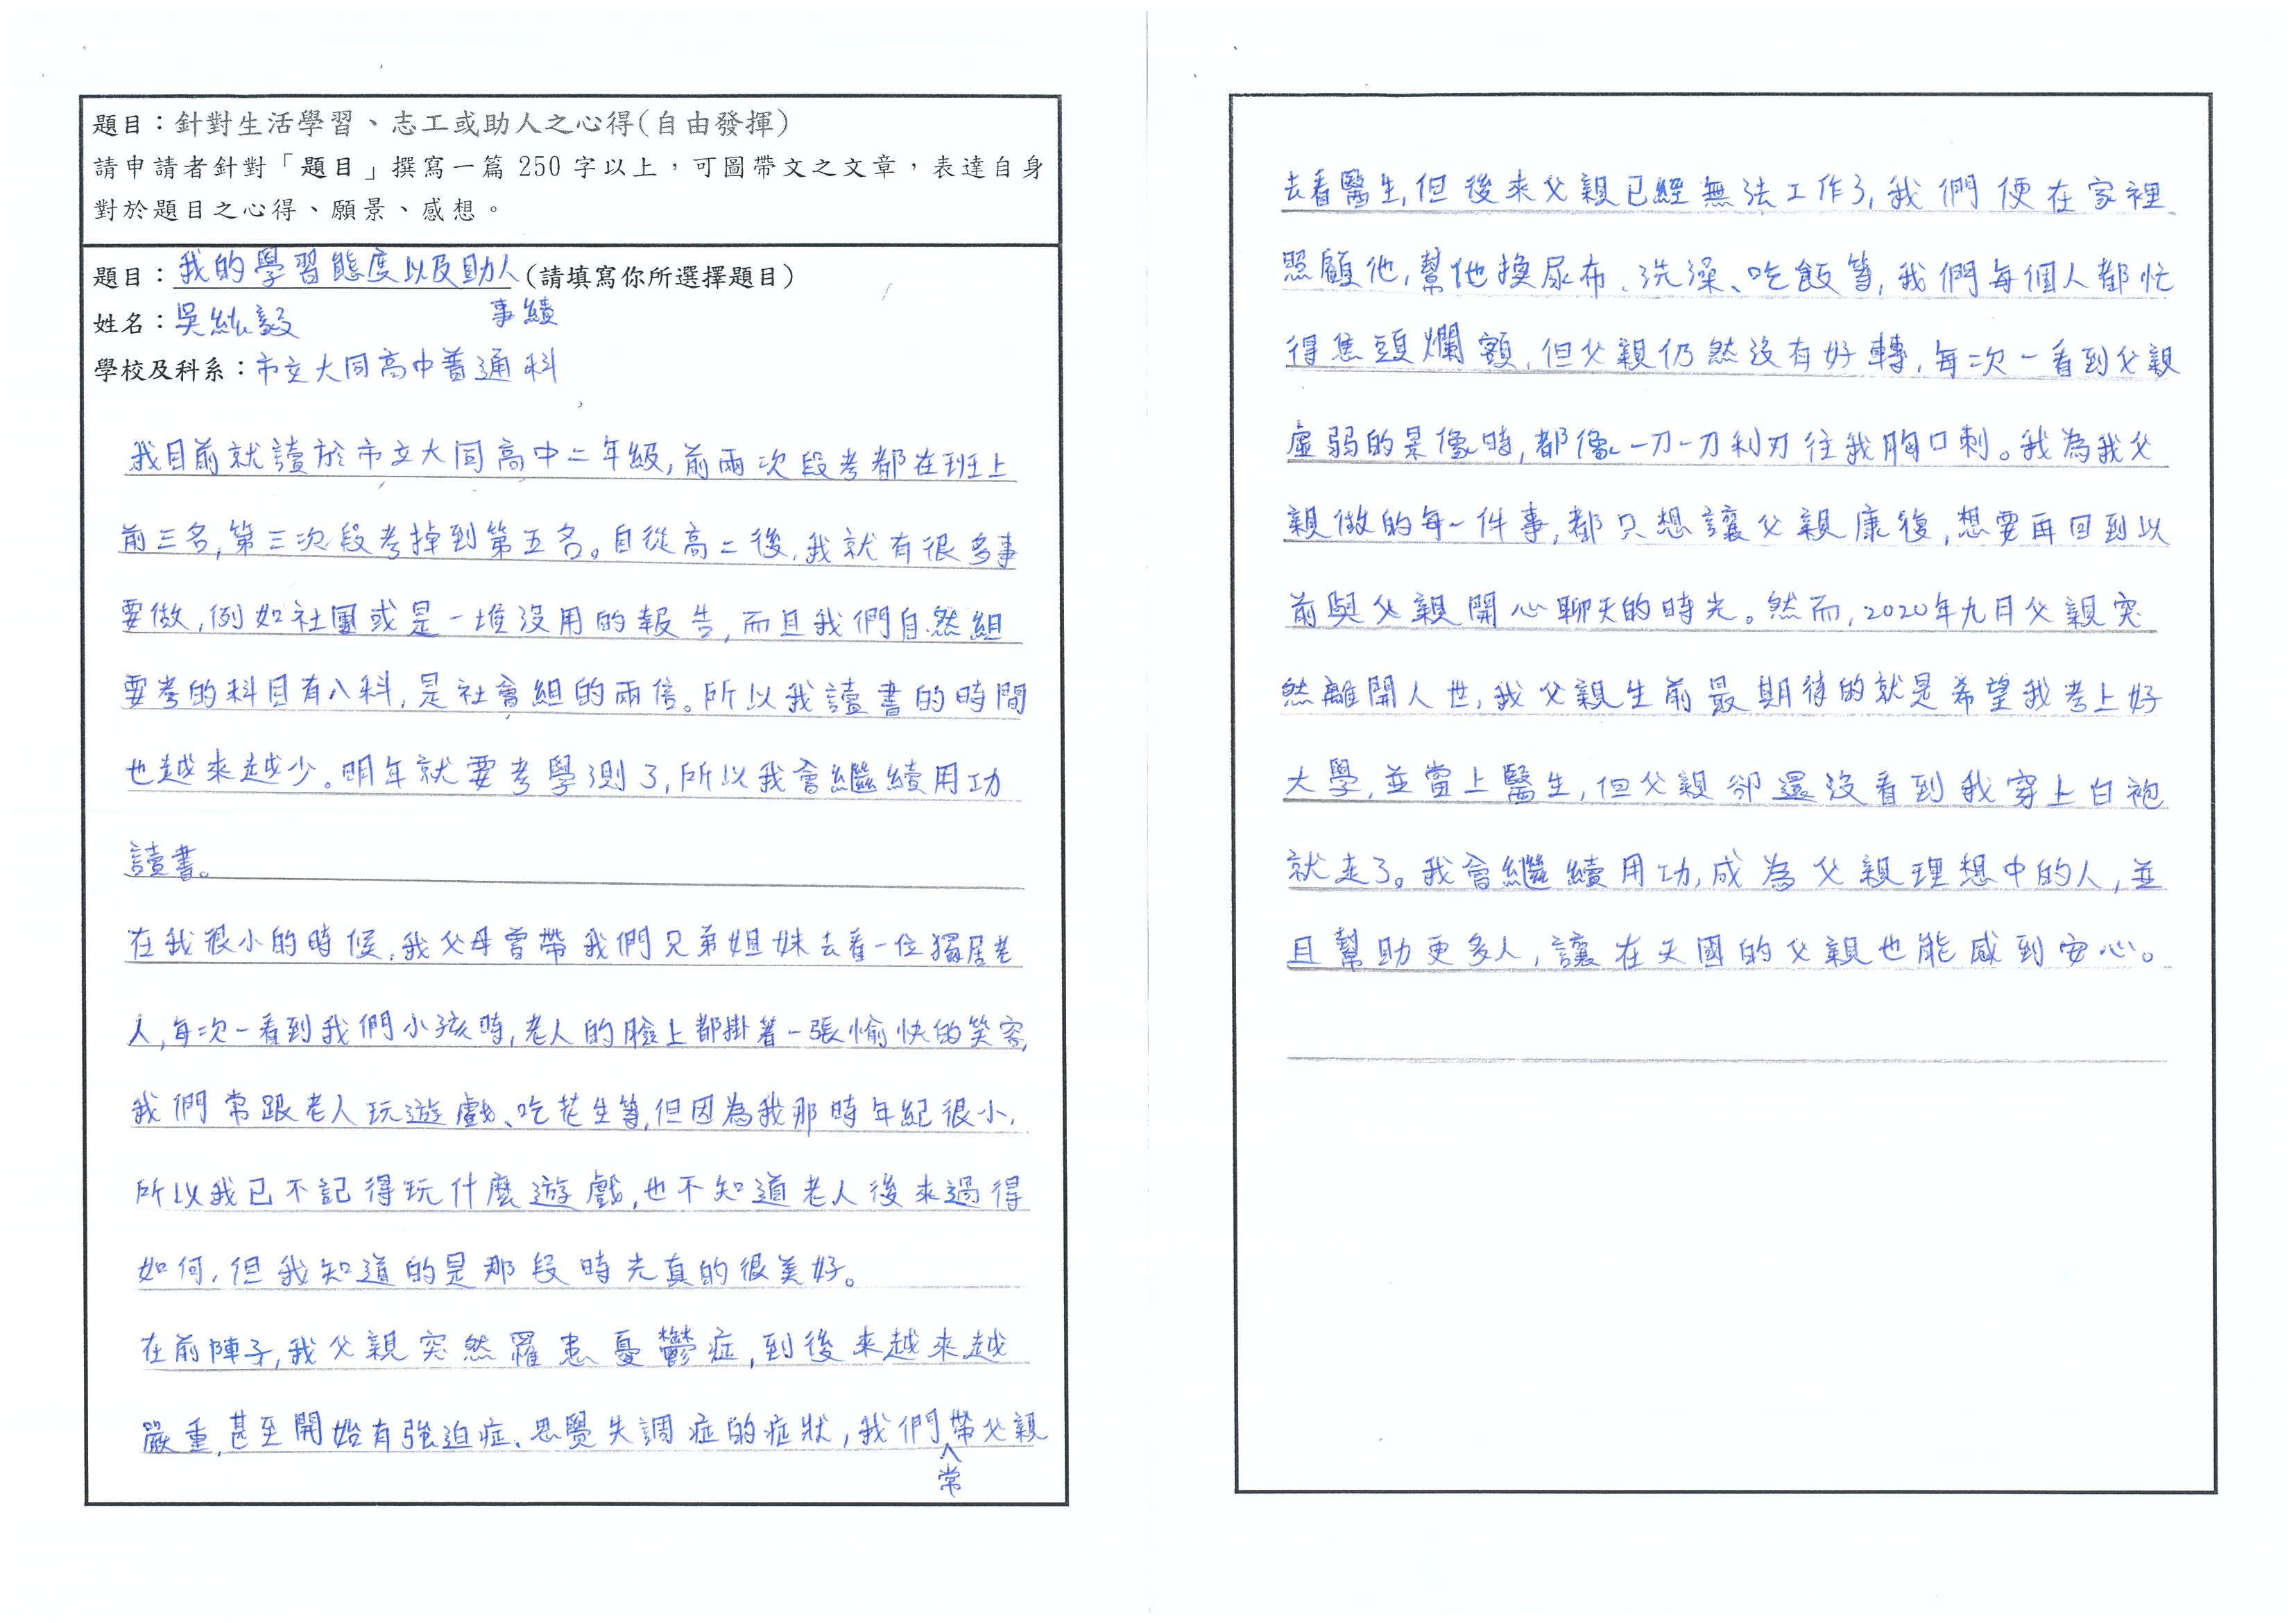 題目：針對生活學習、志工或助人之心得(自由發揮)
請申請者針對「題目」撰寫一篇 250 字以上，可圖帶文之文章，表達自身
對於題目之心得、願景、感想。
題目：我的學習態度以及助人(請填寫你所選擇題目)
事績
姓名：吳紘毅
學校及科系：市立大同高中普通科
我目前就讀於市立大同高中二年級,前兩次段考都在班上
前三名,第三次段考掉到第五名。自從高二後,我就有很多事
要做,例如社團或是一堆沒用的報告,而且我們自然組
要考的科目有八科,是社會組的兩倍。所以我讀書的時間
也越來越少。明年就要考學測了,所以我會繼續用功
讀書。
在我很小的時候,我父母曾帶我們兄弟姐妹去看一位獨居老
人,每次一看到我們小孩時,老人的臉上都掛著一張愉快的笑容,
我們常跟老人玩遊戲、吃花生等,但因為我那時年紀很小,
所以我已不記得玩什麼遊戲,也不知道老人後來過得
如何,但我知道的是那段時光真的很美好。
在前陣子,我父親突然罹患憂鬱症,到後來越來越
嚴重,甚至開始有強迫症、思覺失調症的症狀,我們常帶父親
去看醫生,但後來父親已經無法工作了,我們便在家裡
照顧他,幫他換尿布、洗澡、吃飯等,我們每個人都忙
得焦頭爛額,但父親仍然沒有好轉,每次一看到父親
虛弱的景像時,都像一刀一刀利刃往我胸口刺。我為我父
親做的每一件事,都只想讓父親康復,想要再回到以
前與父親開心聊天的時光。然而,2020年九月父親突
然離開人世,我父親生前最期待的就是希望我考上好
大學,並當上醫生,但父親卻還沒看到我穿上白袍
就走了。我會繼續用功,成為父親理想中的人,並
且幫助更多人,讓在天國的父親也能感到安心。